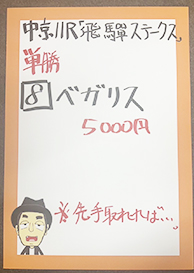 中京11R「飛騨ステークス」
単勝
8 ベガリス
5000円
※先手取れれば…。